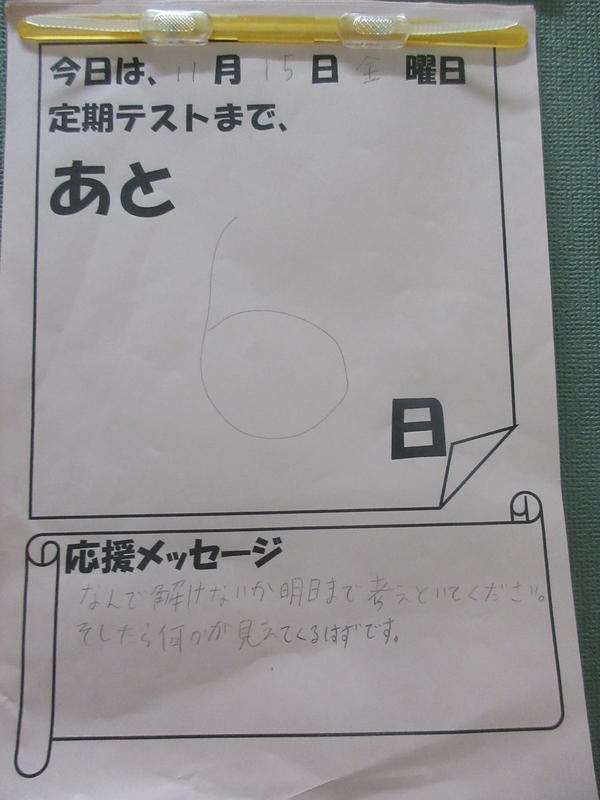 今日は、11月15日金曜日
定期テストまで、
あと
6
日
応援メッセージ
なんで解けないか明日まで考えといてください。
そしたら何のが見えてくるはずです。